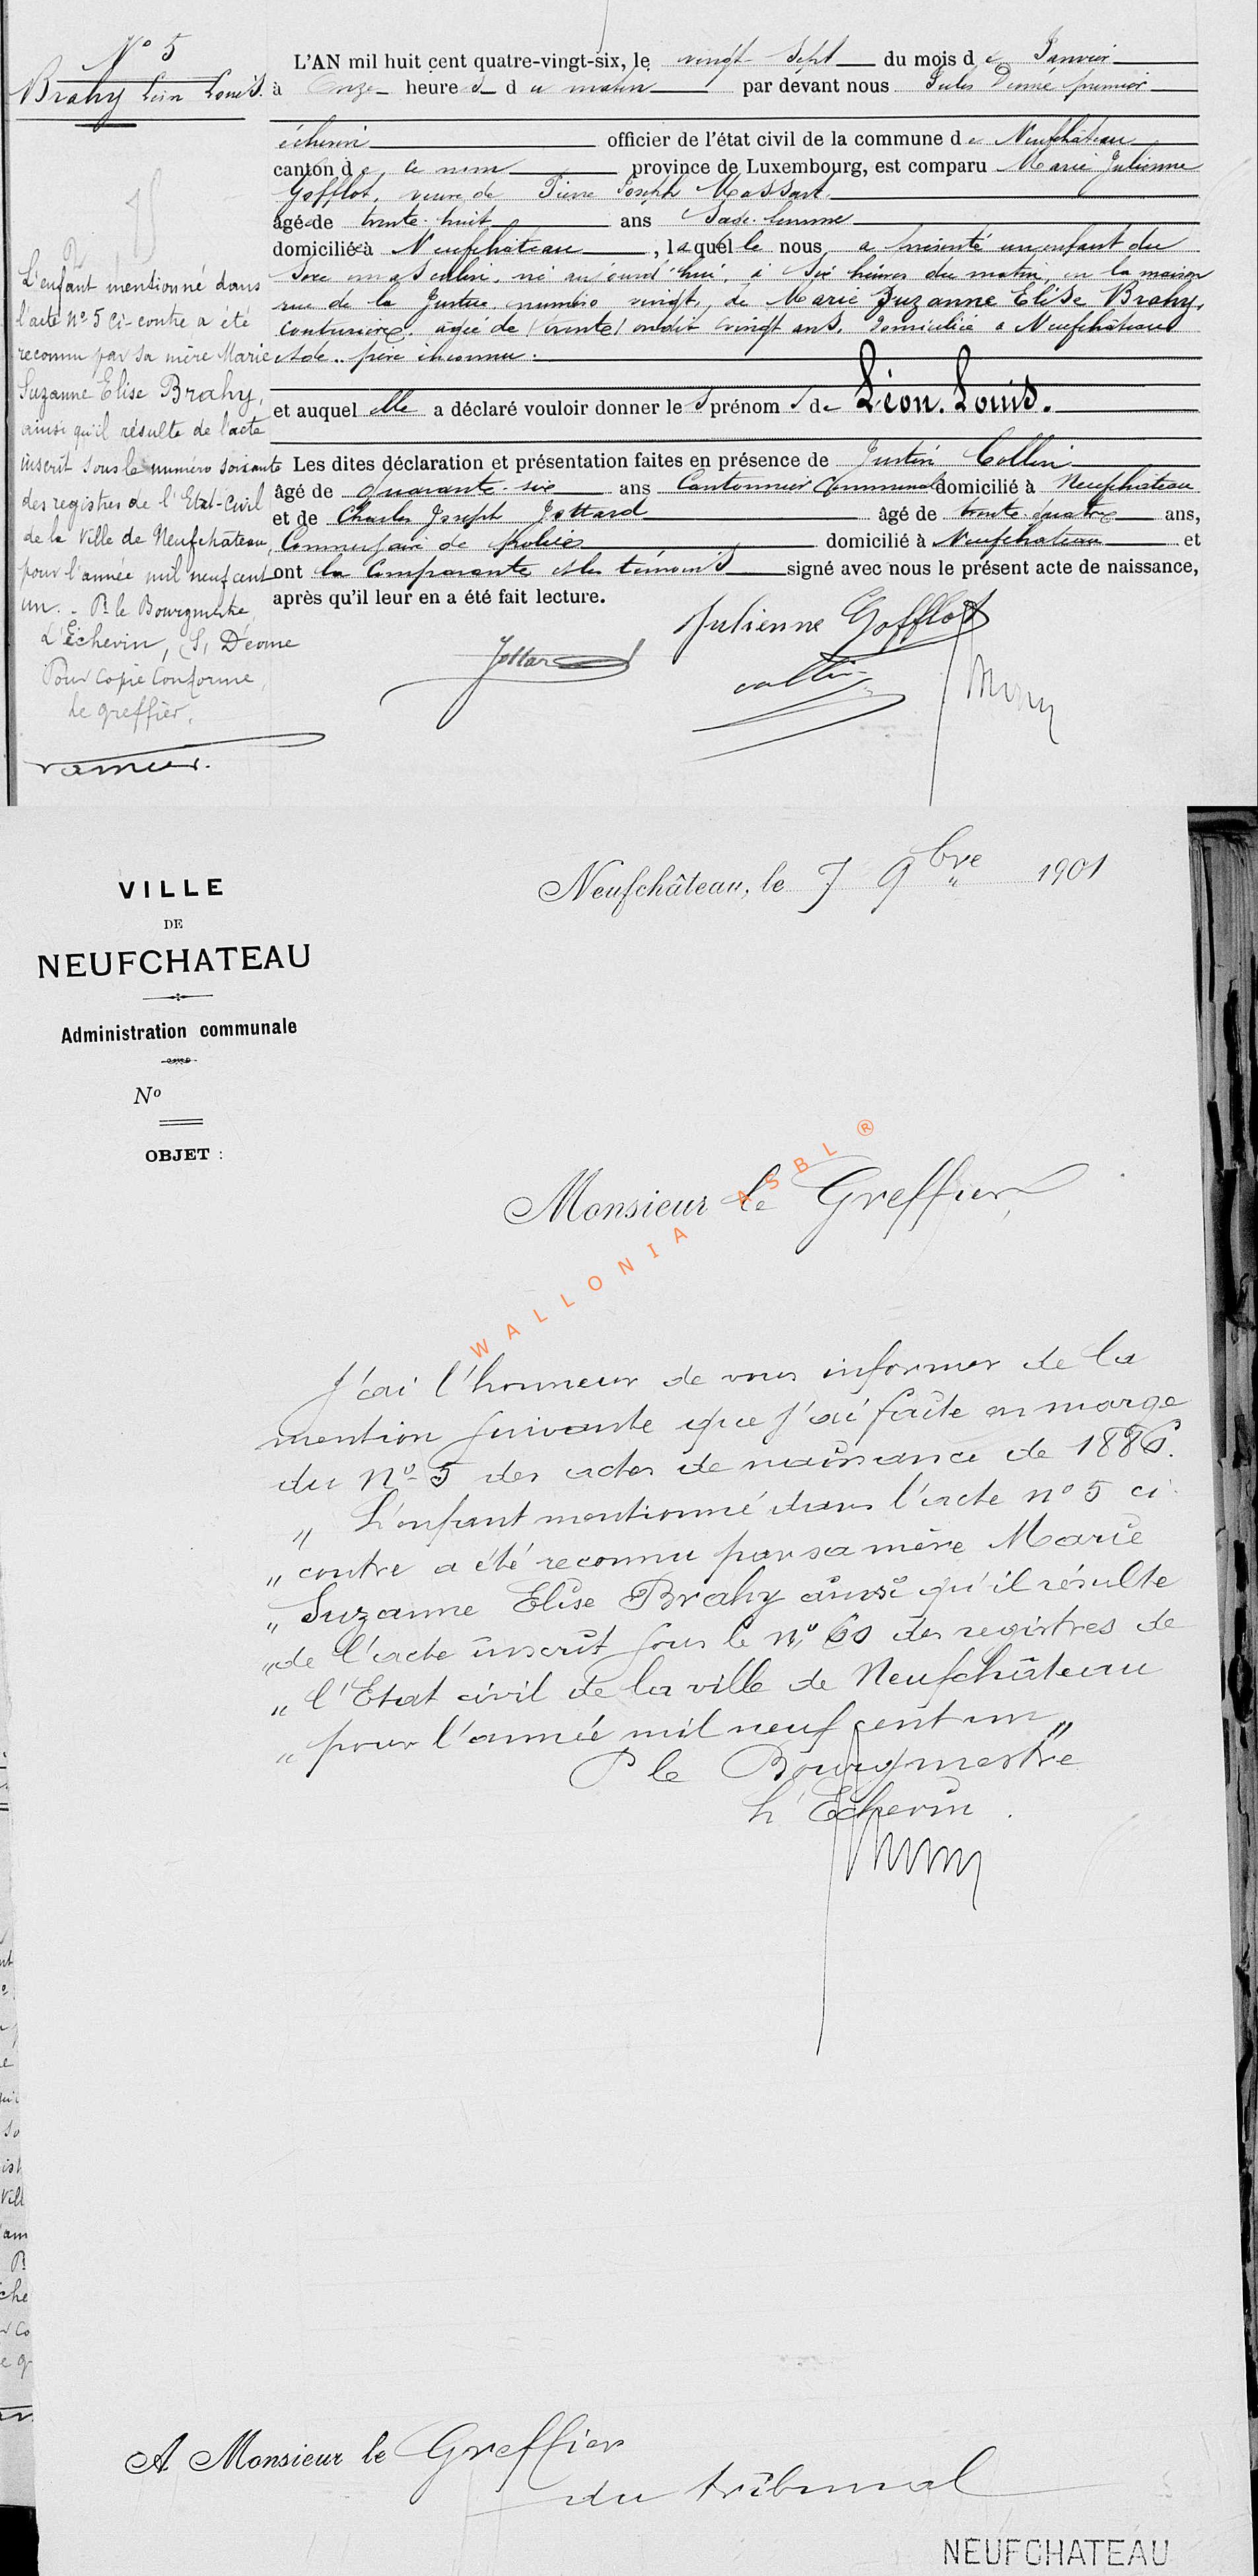 N° 5
Brahy Léon Louis.
L'AN mil huit cent quatre-vingt-six, le vingt-sept du mois de Janvier
à onze heures du matin par devant nous Jules Déome premier
échevin officier de l'état civil de la commune de Neufchâteau
canton de ce nom province de Luxembourg, est comparu Marie Julienne
Gofflot, veuve de Pierre Joseph Massart
âgée de trente-huit ans Sage-femme
domiciliée à Neufchâteau, laquelle nous a présenté un enfant du
sexe masculin, né aujourd'hui, à six heures du matin, en la maison
rue de la Justice numéro vingt, de Marie Suzanne Elise Brahy,
couturière, agée de (trente) on dit vingt ans, domiciliée à Neufchâteau
et de père inconnu.
et auquel elle a déclaré vouloir donner les prénoms de Léon. Louis.
Les dites déclaration et présentation faites en présence de Justin Collin
âgé de quarante-six ans Cantonnier Communal domicilié à Neufchâteau
et de Charles Joseph Jottard âgé de trente-quatre ans,
Commissaire de police domicilié à Neufchateau et
ont la Comparante et les témoins signé avec nous le présent acte de naissance,
après qu'il leur en a été fait lecture.
Julienne Gofflot
Jottard
Collin
L'enfant mentionné dans
l'acte N° 5 ci-contre a été
reconnu par sa mère Marie
Suzanne Elise Brahy,
ainsi qu'il résulte de l'acte
inscrit sous le numéro soixante
des registres de l'Etat-Civil
de la Ville de Neufchateau,
pour l'année mil neuf cent
un. - Pr le Bourgmestre,
L'Échevin, (S) Déome
Pour Copie Conforme,
Le greffier,
VILLE
DE
NEUFCHATEAU
Administration communale
N°
OBJET :
Neufchâteau, le 7 9bre 1901
Monsieur le Greffier,
WALLONIA ASBL ®
J'ai l'honneur de vous informer de la
mention suivante que j'ai faite en marge
du n° 5 des actes de naissance de 1886.
" L'enfant mentionné dans l'acte n° 5 ci
" contre a été reconnu par sa mère Marie
" Suzanne Elise Brahy ainsi qu'il résulte
" de l'acte inscrit sous le n° 60 des registres de
" l'Etat civil de la ville de Neufchâteau
" pour l'année mil neuf cent un "
P le Bourgmestre
L'Echevin.
A Monsieur le Greffier
du tribunal
NEUFCHATEAU